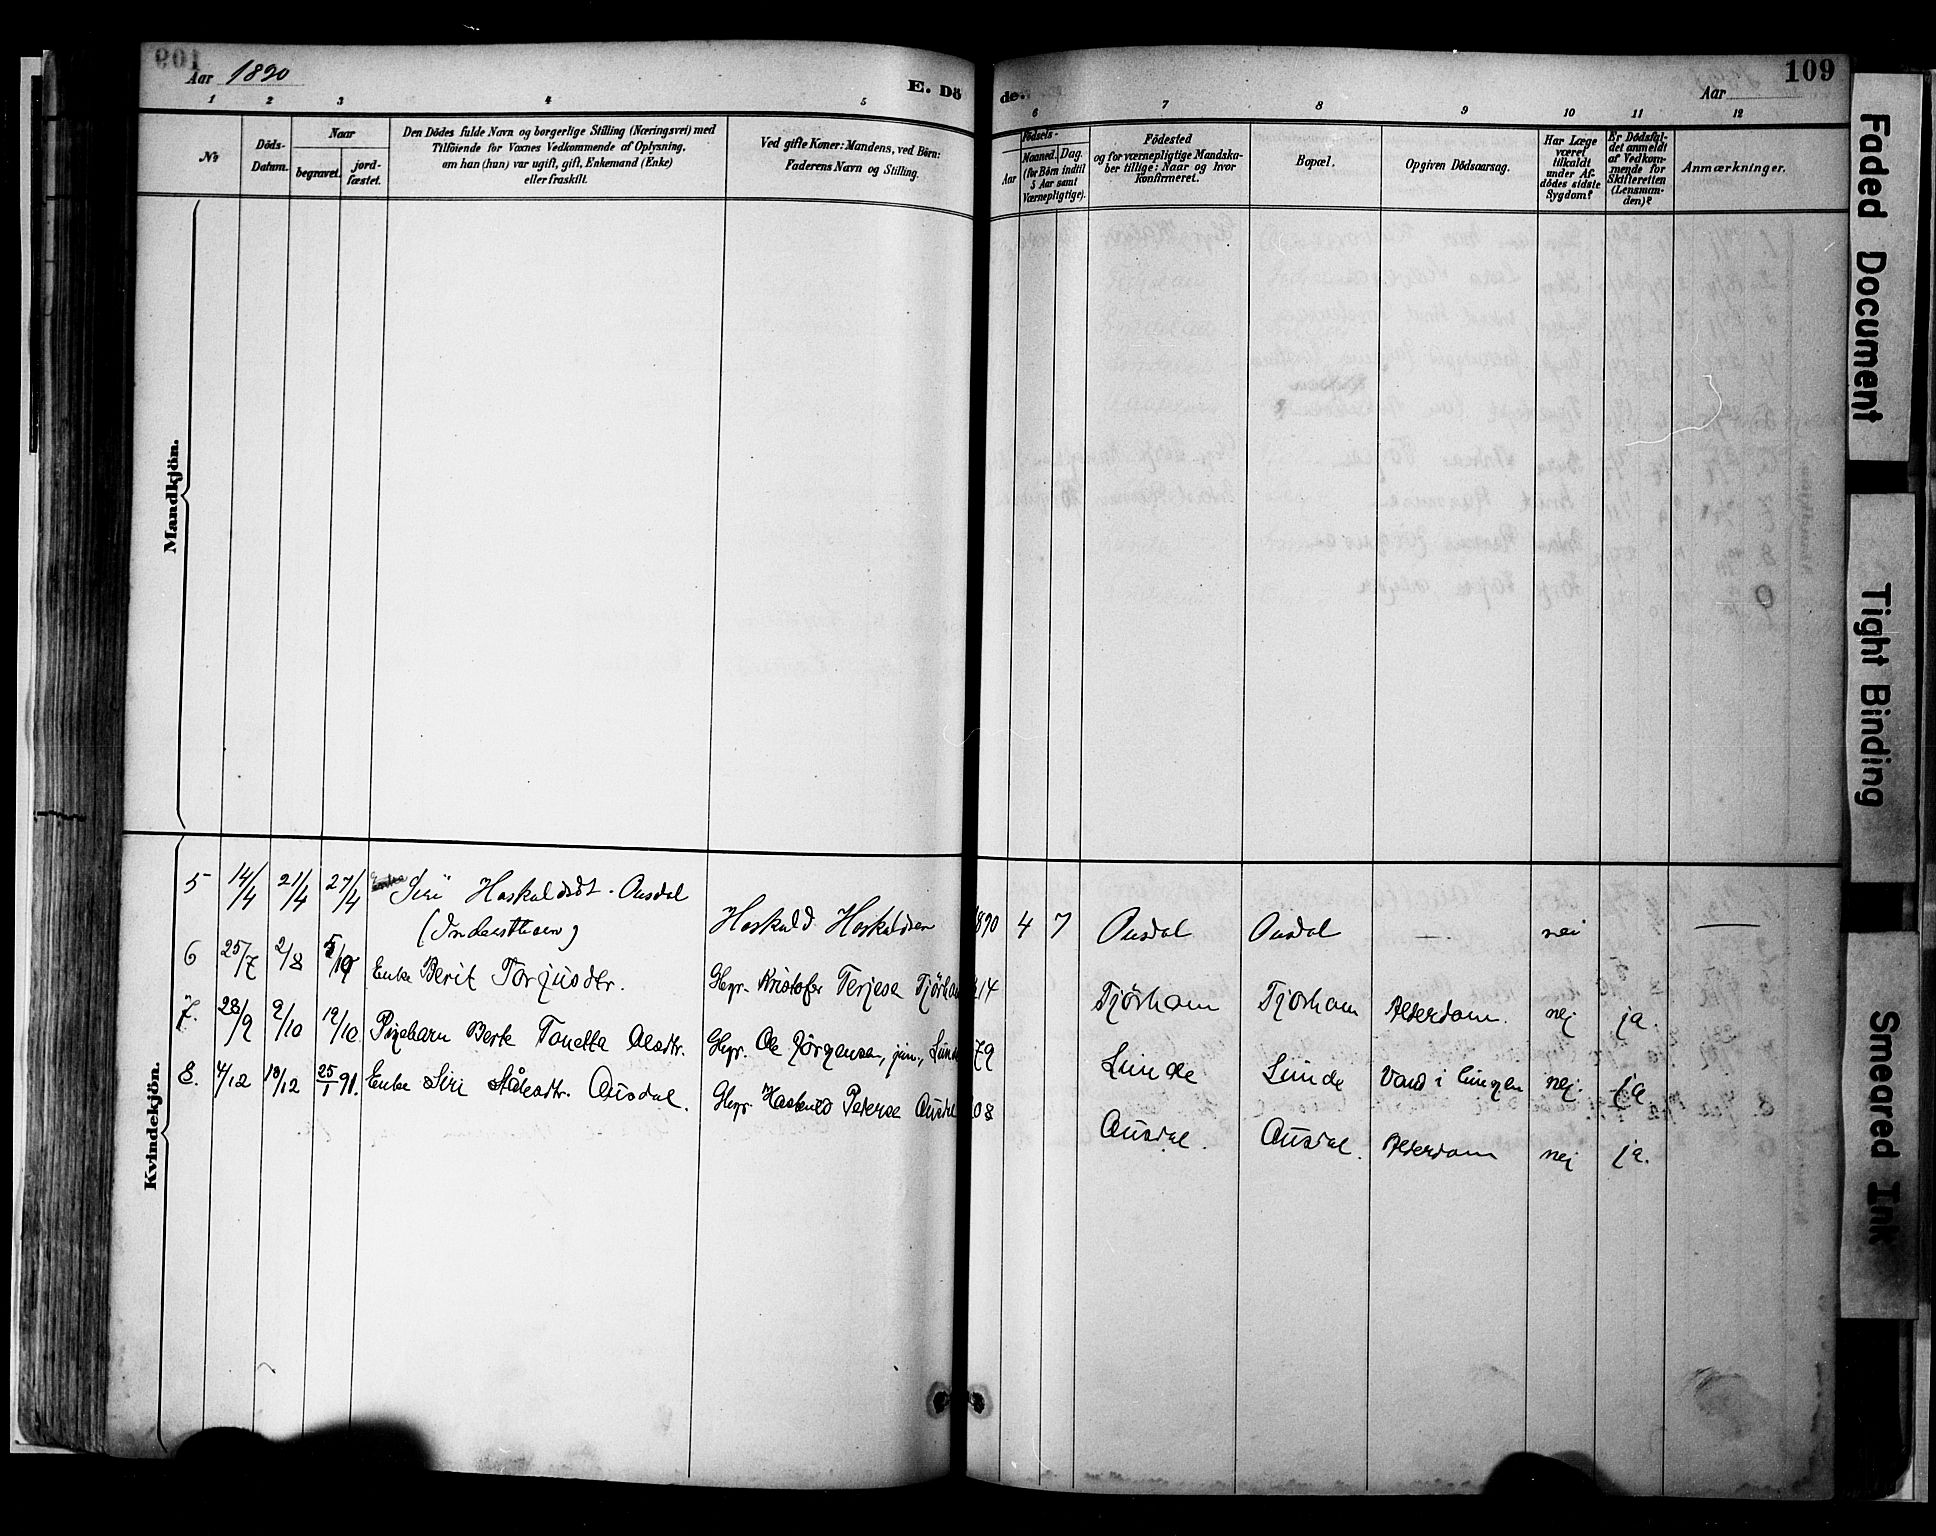 109
Aar 1890
E. Dö
de.
109
Aar
1 2 3 4 5 6 7 8 9 10 11 12
No
Döds-Datum.
Naar
begravet.
jord-fæstet.
Den Dödes fulde Navn og borgerlige Stilling (Næringsvei) med
Tilföiende for Voxnes Vedkommende af Oplysning,
om han (hun) var ugift, gift, Enkemand (Enke)
eller fraskilt.
Ved gifte Koner: Mandens, ved Börn:
Faderens Navn og Stilling.
Födsels-
Aar
Maaned. Dag.
(for Börn indtil
5 Aar samt
Værnepligtige).
Födested
og for værnepligtige Mandska-
ber tillige: Naar og hvor
konfirmeret.
Bopæl.
Opgiven Dödsaarsag.
Har Læge
været
tilkaldt
under Af-
dödes sidste
Sygdom?
Er Dödsfal-
det anmeldt
af Vedkom-
mende for
Skifteretten
(Lensman-
den)?
Anmærkninger.
Mandkjön.
Kvindekjön.
5 14/4 21/4 27/4 Siri Haskuldsdt. Ousdal
Haskuld Haskuldsen 1890 4 7 Ousdal Ousdal — nei —
6 25/7 2/8 Enke Berit Torjusdtr. Gbgr. Kristofer Terjese Tjørham 14 Tjørham Tjørham Alderdom. nej ja.
7. 28/9 9/10 19/10 Pigebarn Berte Tonette Olesdtr. Gbgr. Ole Jørgensen, jun., Lunde 79 Lunde Lunde Vand i Lungen nej. ja.
8. 4/12 10/12 25/1 91. Enke Siri Ståledtr. Ousdal. Gbgr. Haskuld Peterse Ousdal 08 Ousdal. Ousdal. Alderdom nej ja.
Faded Document
Tight Binding
Smeared Ink